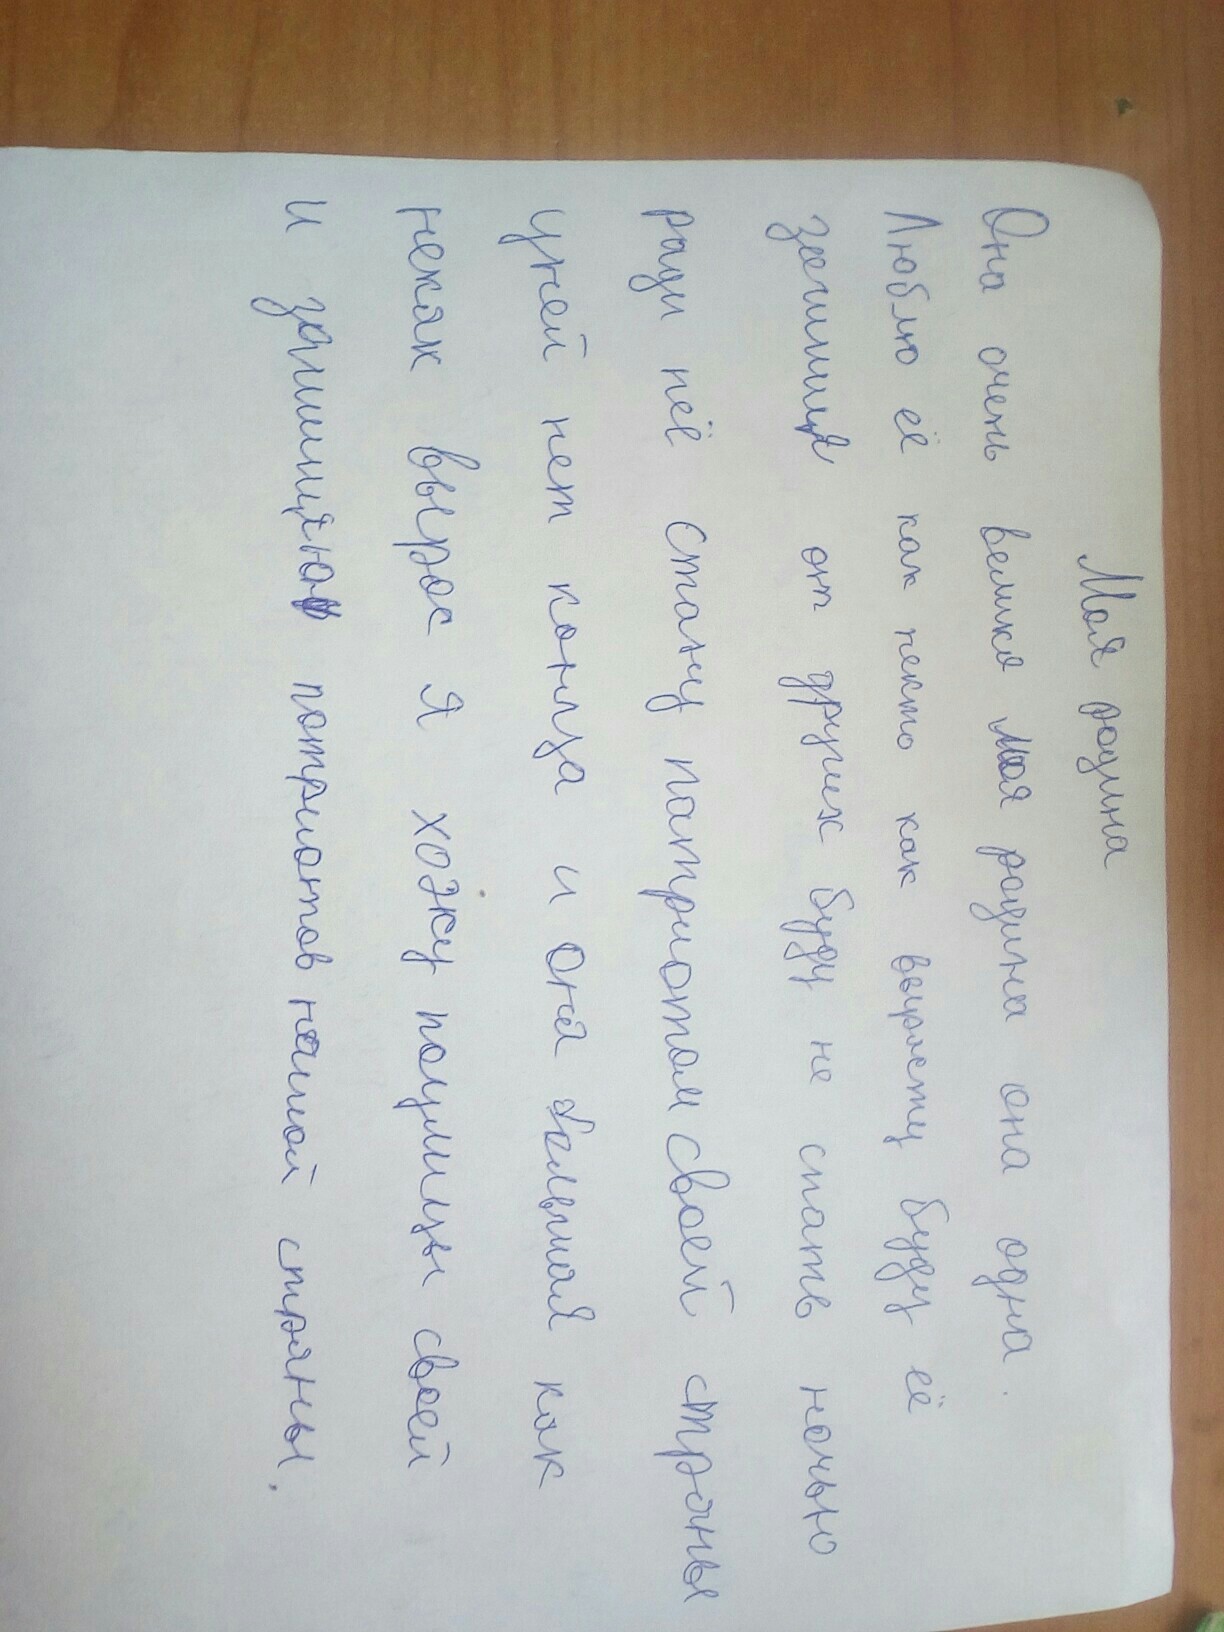 Моя родина
Она очень велика моя родина она одна.
Люблю её как некто как вырасту буду её
защищя от других буду не спать ночью
ради неё стану патриотом своей страны
уней нет конца и она большая как
некяк вырос я хожу по улицы своей
и защищяю потриотов нашой стряны.